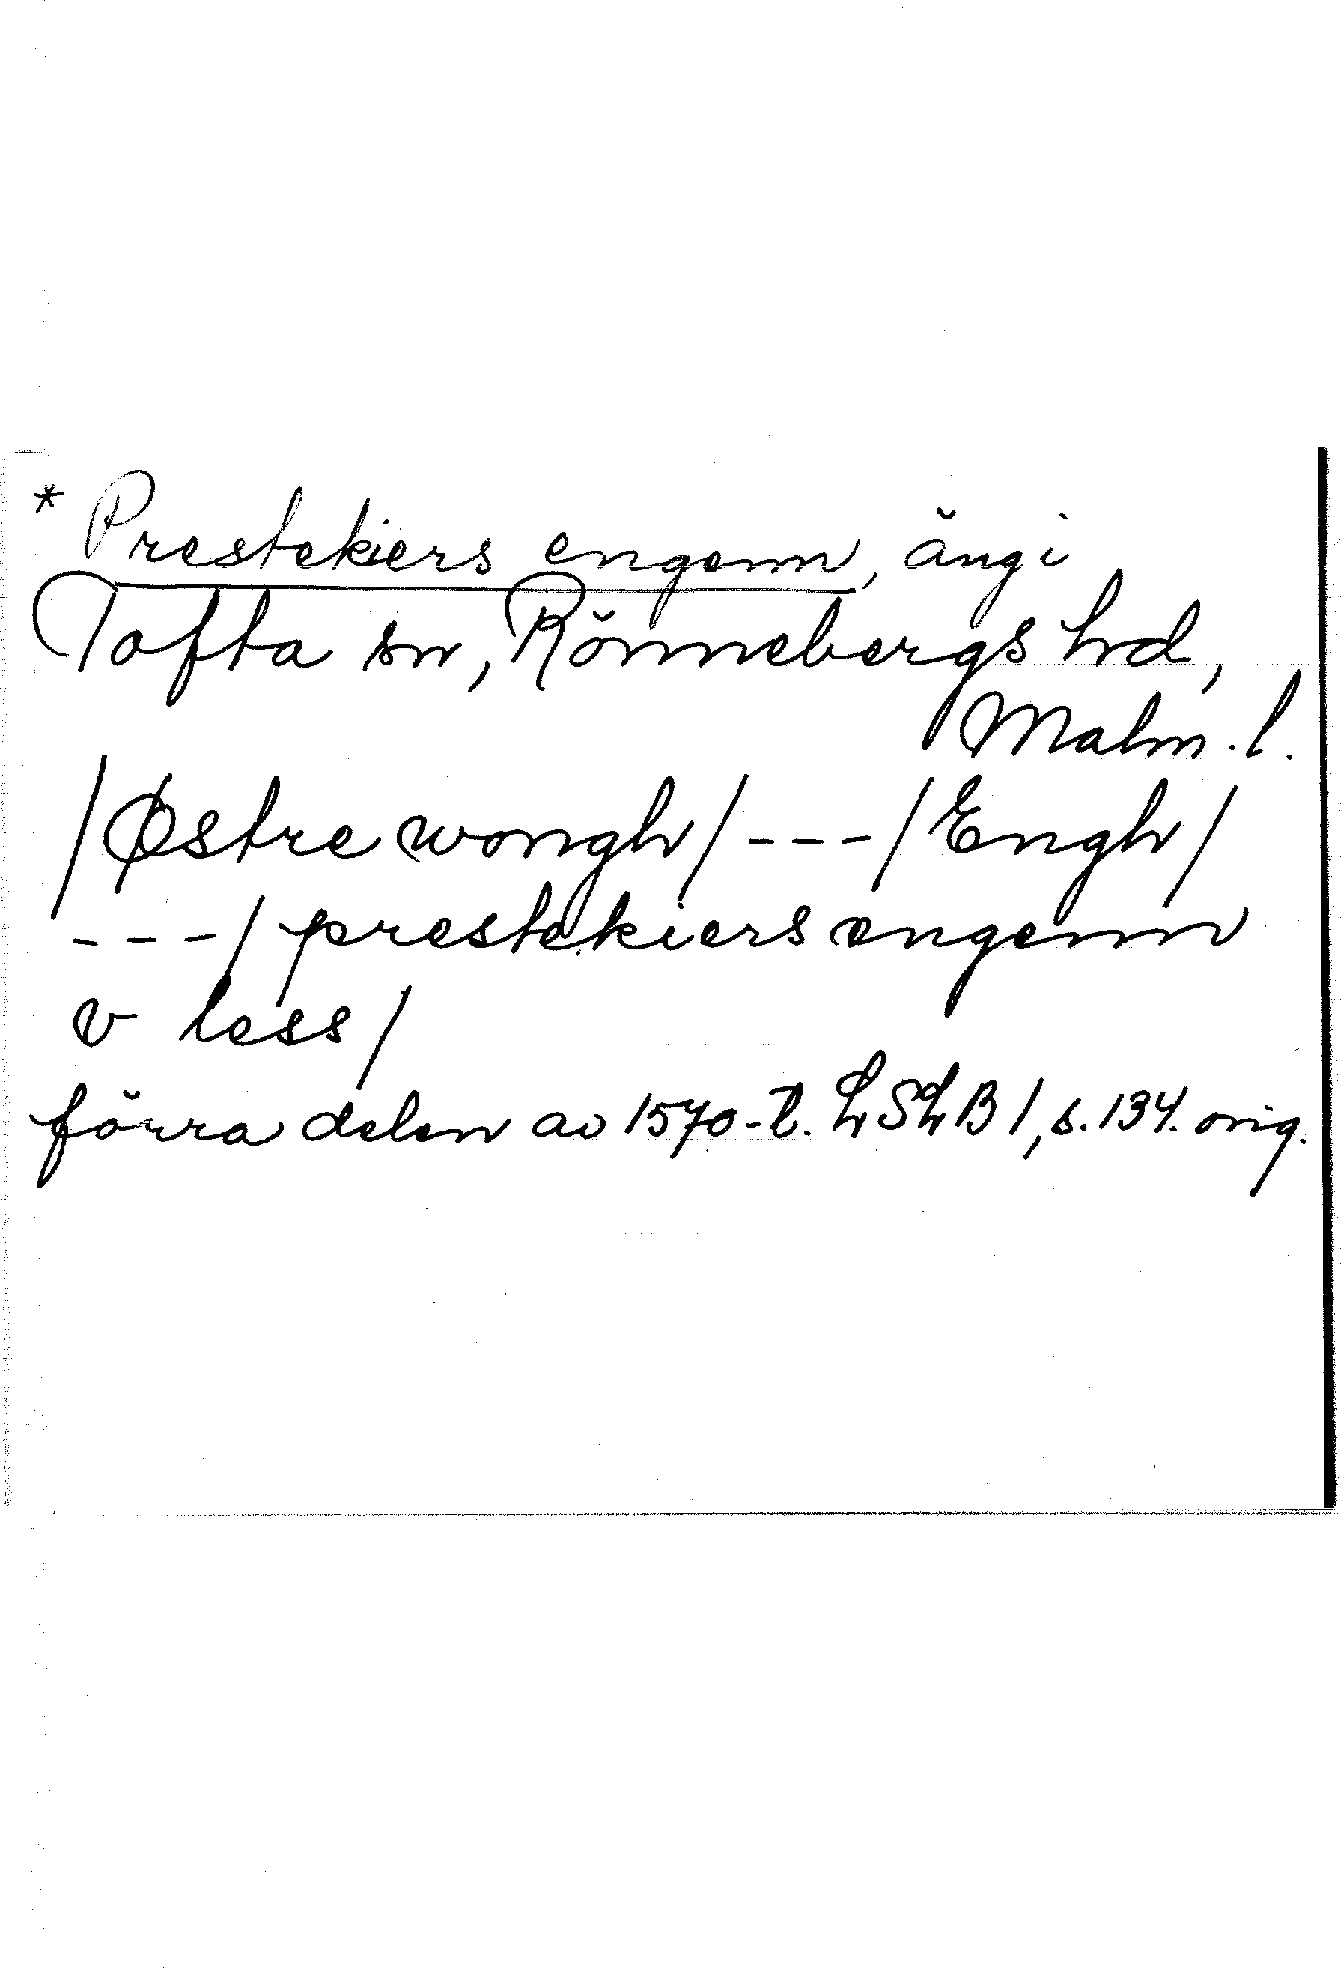 * Prestekiers engenn, äng i
Tofta sn, Rönnebergs hd,
Malm. l.
/Østre wongh/ - - - /Engh/
- - - / prestekiers engenn
v less/
förra delen av 1570-t. LSLB 1, s. 134. orig.